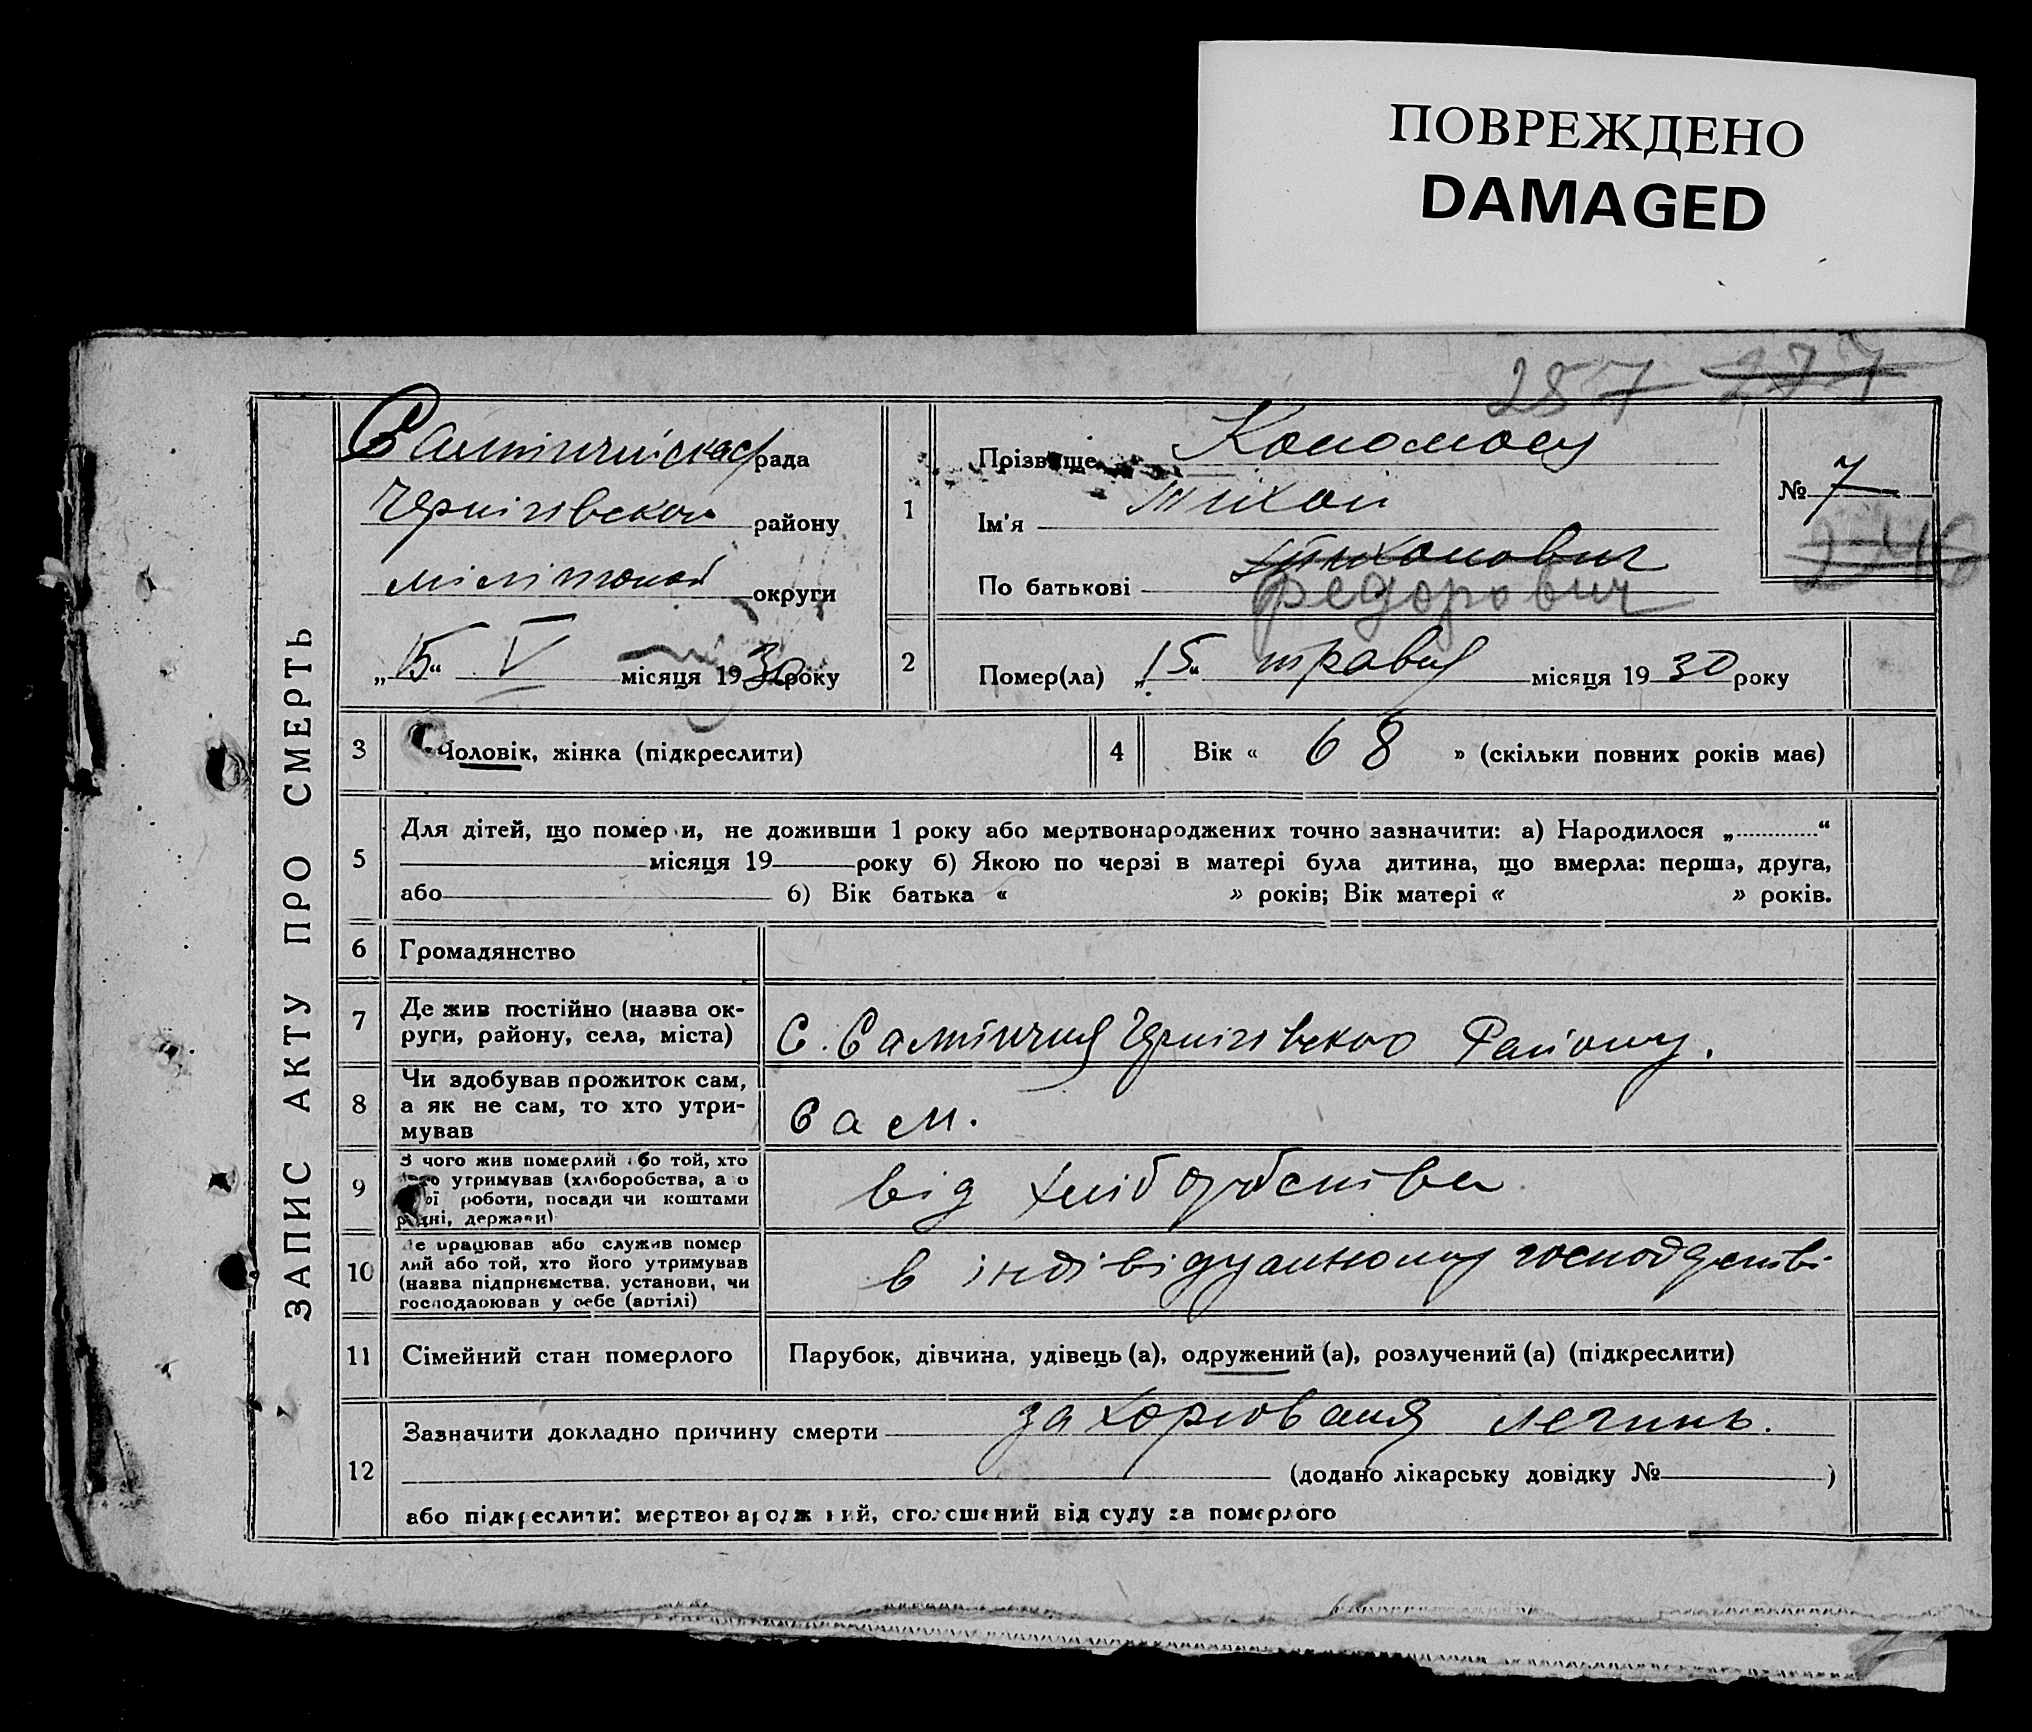 ПОВРЕЖДЕНО
DAMAGED
257 277
ЗАПИС АКТУ ПРО СМЕРТЬ
рада
Чернігівського району
округи
„15“ V місяця 1930 року
1
Прізвище
Ім'я Тихон
По батькові Тихонович
Федорович
№ 7
246
2
Помер(ла) „15“ травня місяця 1930 року
3
Чоловік, жінка (підкреслити)
4
Вік « 68 » (скільки повних років має)
5
Для дітей, що померли, не доживши 1 року або мертвонароджених точно зазначити: а) Народилося „ “
місяця 19 року б) Якою по черзі в матері була дитина, що вмерла: перша, друга,
або 6) Вік батька « » років; Вік матері « » років.
6
Громадянство
7
Де жив постійно (назва ок-
руги, району, села, міста)
С. Салтичия Чернігівського Району.
8
Чи здобував прожиток сам,
а як не сам, то хто утри-
мував
Сам.
9
З чого жив померлий або той, хто
його утримував (хліборобства, або
роботи, посади чи коштами
рідні, держави)
від хліборобства
10
Де працював або служив помер
лий або той, хто його утримував
(назва підприємства, установи, чи
господарював у себе (артілі)
в індівідуальному господарстві
11
Сімейний стан померлого
Парубок, дівчина, удівець (а), одружений (а), розлучений (а) (підкреслити)
12
Зазначити докладно причину смерти захорювання легинь.
(додано лікарську довідку № )
або підкреслити: мертвонароджений, оголошений від суду за померлого